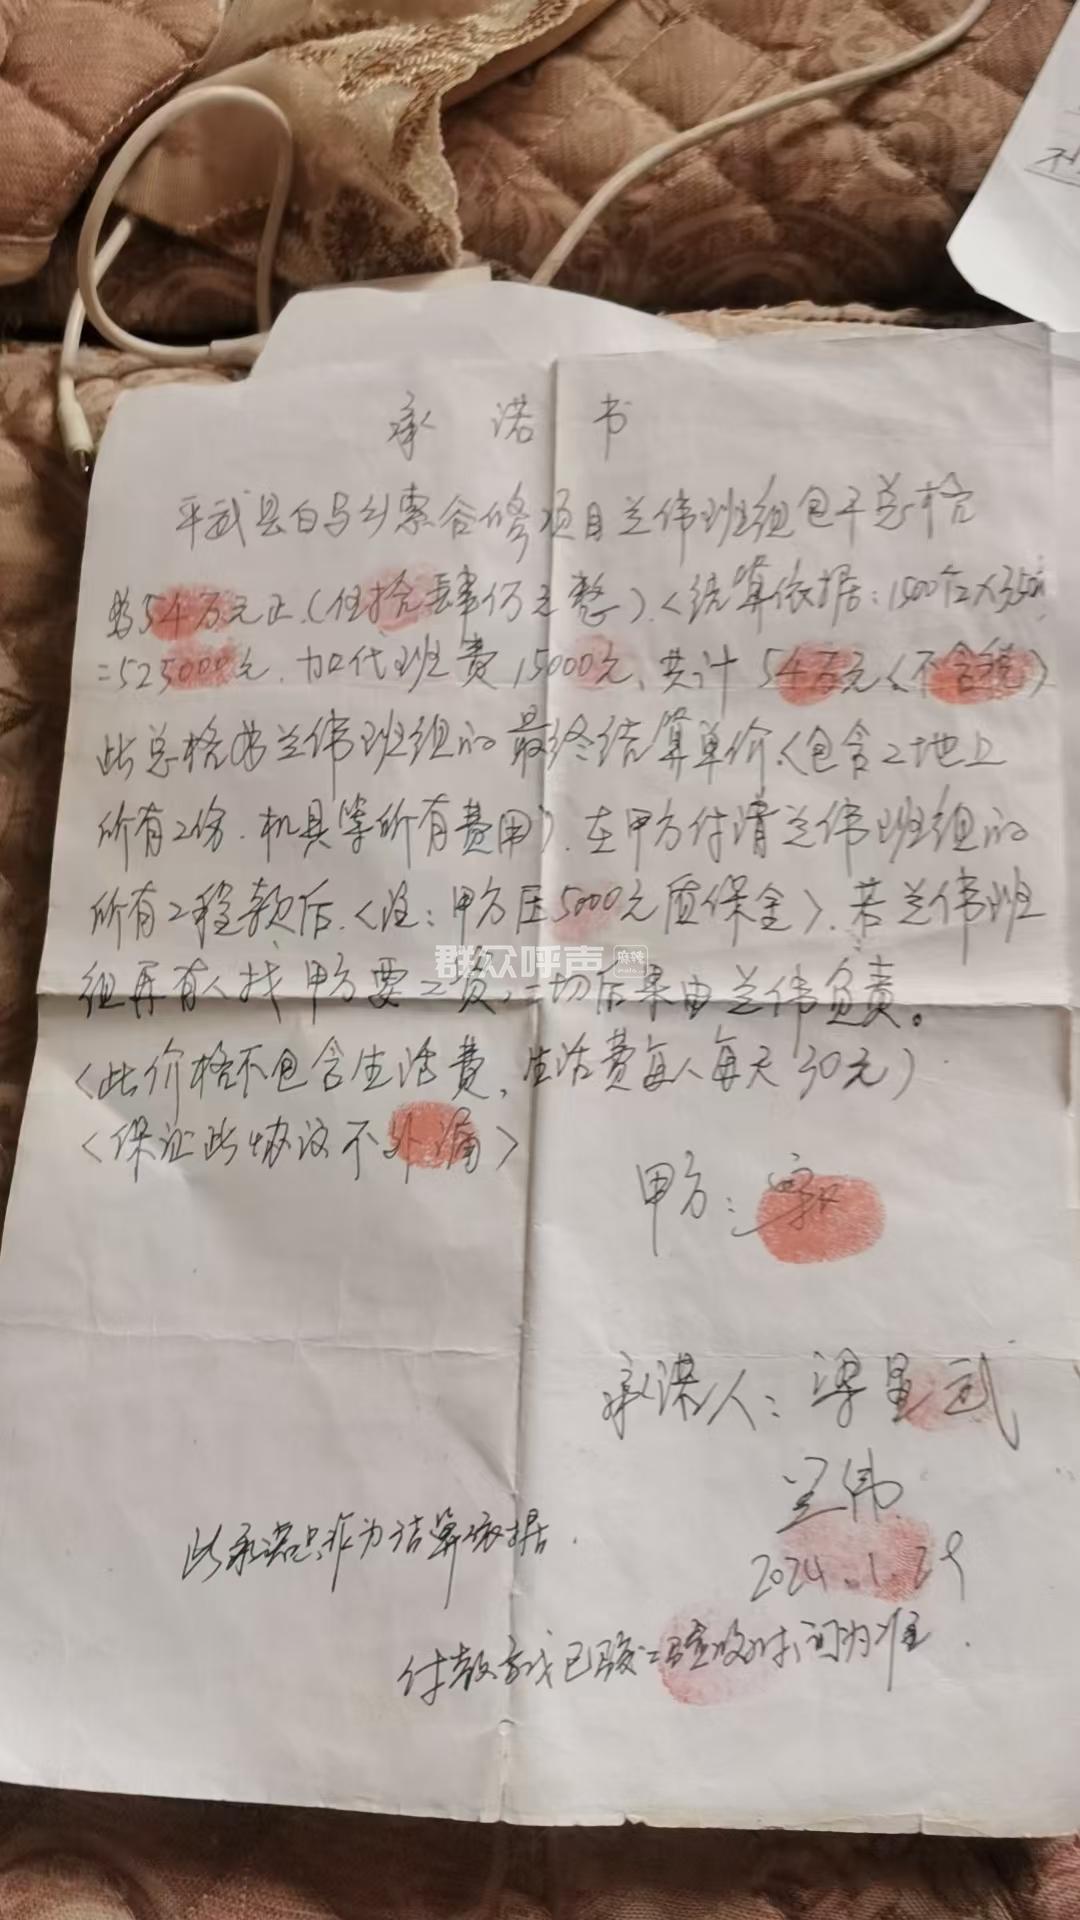 承诺书
平武县白马乡索谷修项目兰伟班组包干总格
为54万元正(伍拾肆万元整)(结算依据:1500个工×350
=525000元,加代班费15000元,共计54万元(不含税)
此总格为兰伟班组的最终结算单价(包含工地上
所有工份.机具等所有费用).在甲方付清兰伟班组的
所有工程款后.(注:甲方压5000元质保金).若兰伟班
组再有人找甲方要工费,一切后果由兰伟负责。
(此价格不包含生活费,生活费每人每天30元)
(保证此协议不外漏)
甲方:
承诺人:梁星武
兰伟
2024.1.29
此承诺只作为结算依据.
付款方式已验收时间为准.
群众呼声 麻辣